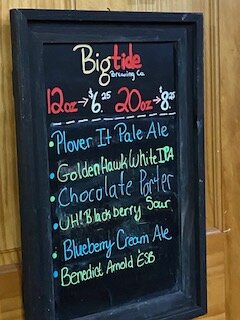 Bigtide
Brewing Co.
12oz → $6.25 20oz → $8.25
• Plover It Pale Ale
• Golden Hawk White IPA
• Chocolate Porter
• UH! Blackberry Sour
• Blueberry Cream Ale
• Benedict Arnold ESB